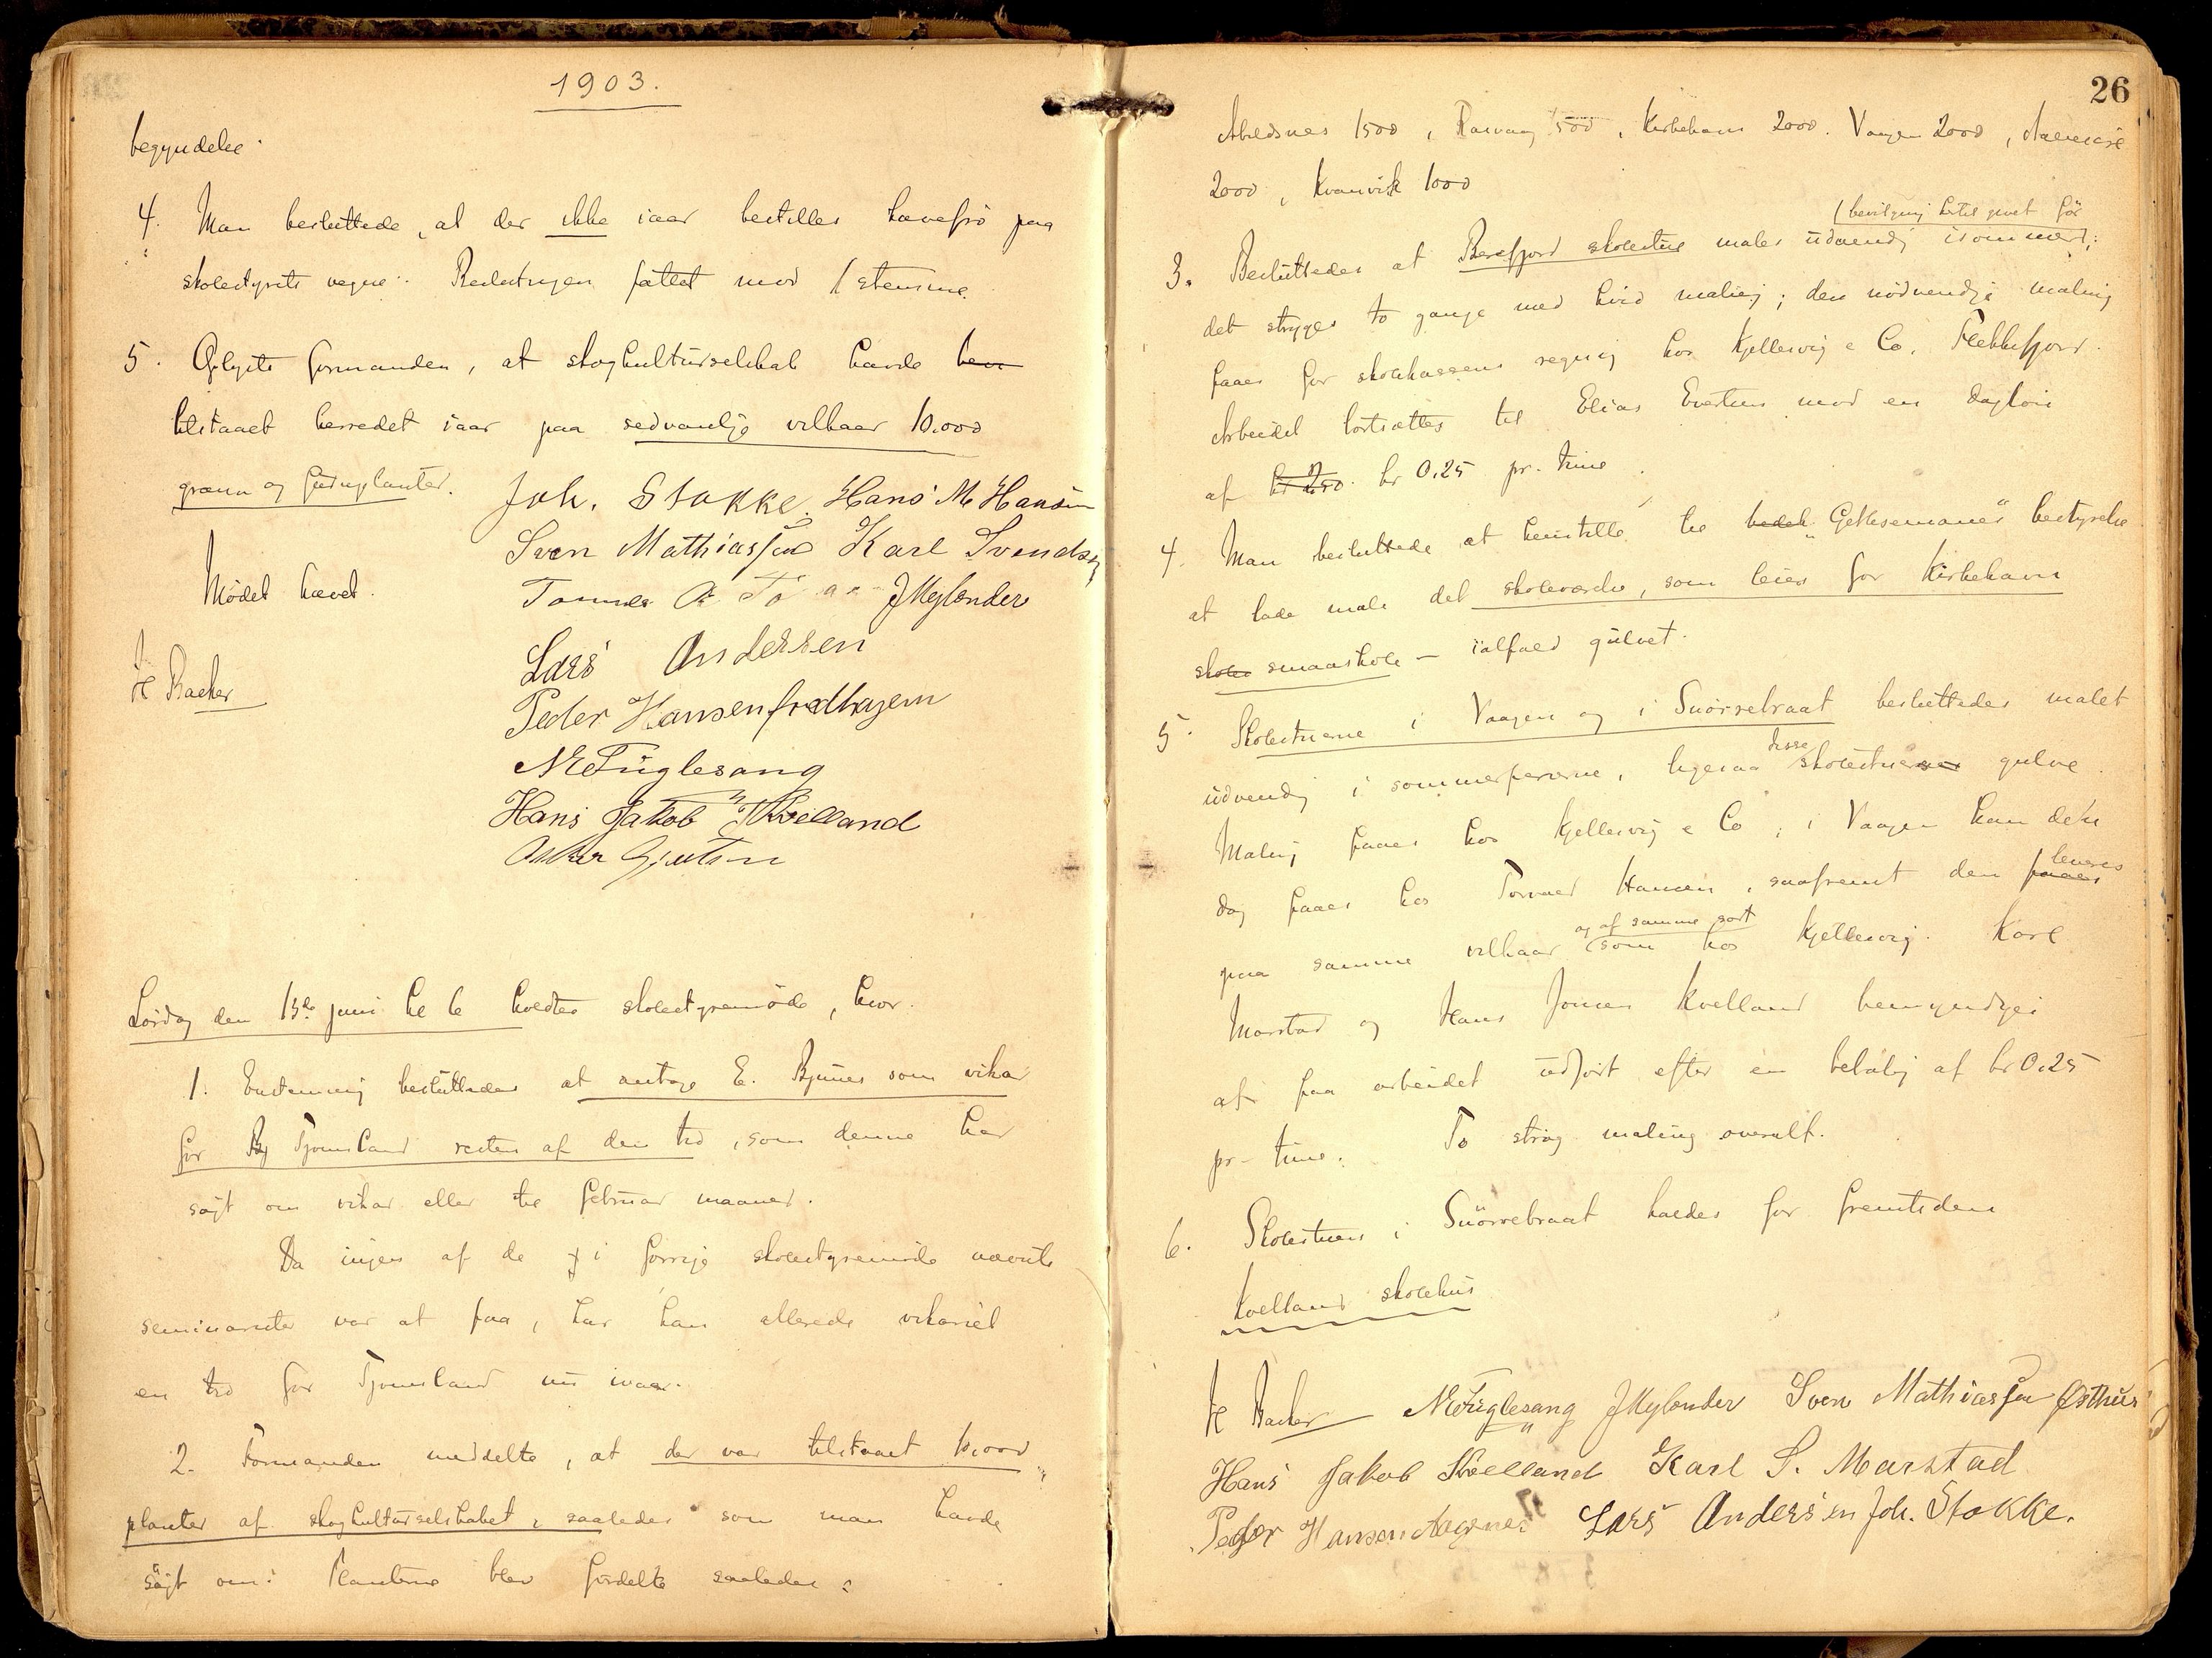 1903.
begyndelse.
4. Man besluttede, at der ikke iaar bestilles havefrö paa
skolestyrets vegne. Beslutningen fattet mod 1 stemme.
5. Oplyste formanden, at skogkulturselskab havde
tilstaaet herredet iaar paa sedvanlige vilkaar 10.000
gran og furuplanter. Joh. Stokke. Hans M Hansen
Sven Mathiassen Karl Svendsen
Mødet hævet. Tønnes JMylander
Lars Andersen
H Backer
Peder Hansen
NEFuglesang
Hans Jakob J Kvelland
Lördag den 13de juni kl 6 holdtes skolestyremöde, hvor.
1. Enstemmig besluttedes at antage E. Bjunes som vikar
for Bj Tjomsland resten af den tid, som denne har
søgt om vikar eller til februar maaned.
Da ingen af de i forrige skolestyremöde nævnte
seminarister var at faa, har han allerede vikariet
en tid for Tjomsland nu ivaar.
2. Formanden meddelte, at der var tilstaaet 10.000
planter af skogkulturselskabet, saaledes som man havde
søgt om. Planterne blev fordelte saaledes:
26
Abelsnes 1500, Rasvaag 1500, Kirkehavn 2000. Vaagen 2000,
2000, Kvanvik 1000
(bevilgning hertil givet för
3. Besluttedes at Berefjord skolestue males udvendig isommer;
det stryges to gange med hvid maling; den nödvendige maling
faaes for skolekassens regning hos Kjellevig & Co, Flekkefjord.
Arbeidet bortsættes til Elias Evertsen mod en daglön
af kr 2,50. kr 0.25 pr. time.
4. Man besluttede at henstille til "Gethsemanes" bestyrelse
at lade male det skoleværelse, som leies for Kirkehavn
skoles smaaskole – ialfald gulvet.
5. Skolestuerne i Vaagen og i Snörsebraat besluttedes malet
disse
udvendig i sommerferierne, ligesaa skolestuers gulve.
Maling faaes hos Kjellevig & Co; i Vaagen kan den
leveres
dog faaes hos Torvald Hansen, saafremt den faaes
og af samme sort
paa samme vilkaar som hos Kjellevig. Karl
Marstad og Hans Jonsen Kvelland bemyndiges
at faa arbeidet udfört efter en betaling af kr 0.25
pr. time. To strög maling overalt.
6. Skolestuen i Snörsebraat kaldes for fremtiden
Kvelland skolehus
H Backer NEFuglesang JMylander Sven Mathiassen Østhus
Hans Jakob Kvelland Karl S. Marstad
Peder Hansen Lars Andersen Joh. Stokke.